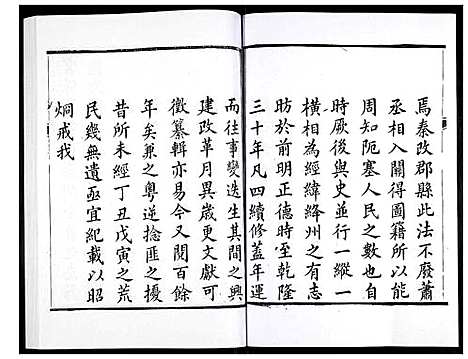 焉秦改郡縣此法不廢蕭
丞相入關得圖籍所以能
周知阨塞人民之數也自
時厥後與史並行一縱一
橫相為經緯絳州之有志
昉於前明正德時至乾隆
三十年凡四續修蓋年運
而往事變迭生其間之興
建改革月異歲更文獻可
徵纂輯亦易今又閱百餘
年矣兼之粵逆捻匪之擾
昔所未經丁丑戊寅之荒
民幾無遺亟宜紀載以昭
炯戒我